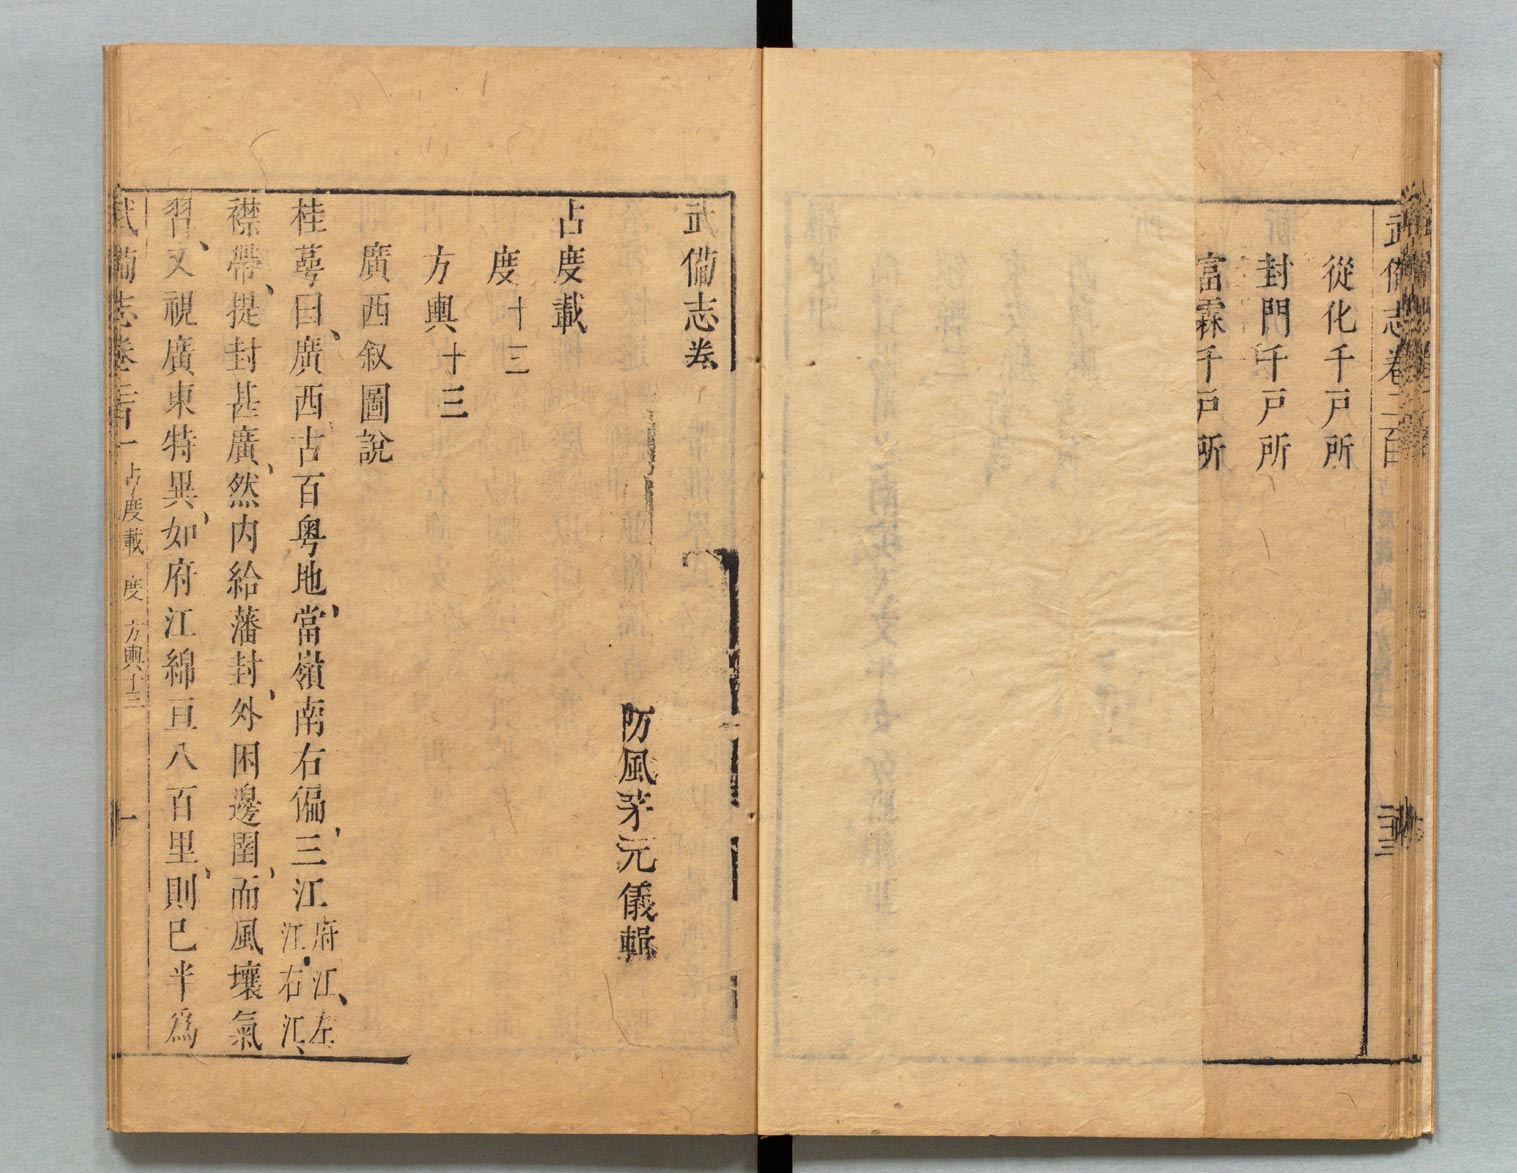 武備志卷二百
從化千戸所
封門千戸所
富霖千戸所
武備志卷
防風茅元儀輯
占度載
度十三
方輿十三
廣西叙圖說
桂萼曰、廣西古百粤地、當嶺南右偏、三江府江、左江、右江、
襟帶、提封甚廣、然内給藩封、外困邊圉、而風壤氣
習、又視廣東特異、如府江綿亘八百里、則已半爲
武備志卷二百一 占度載 度 方輿十三 一